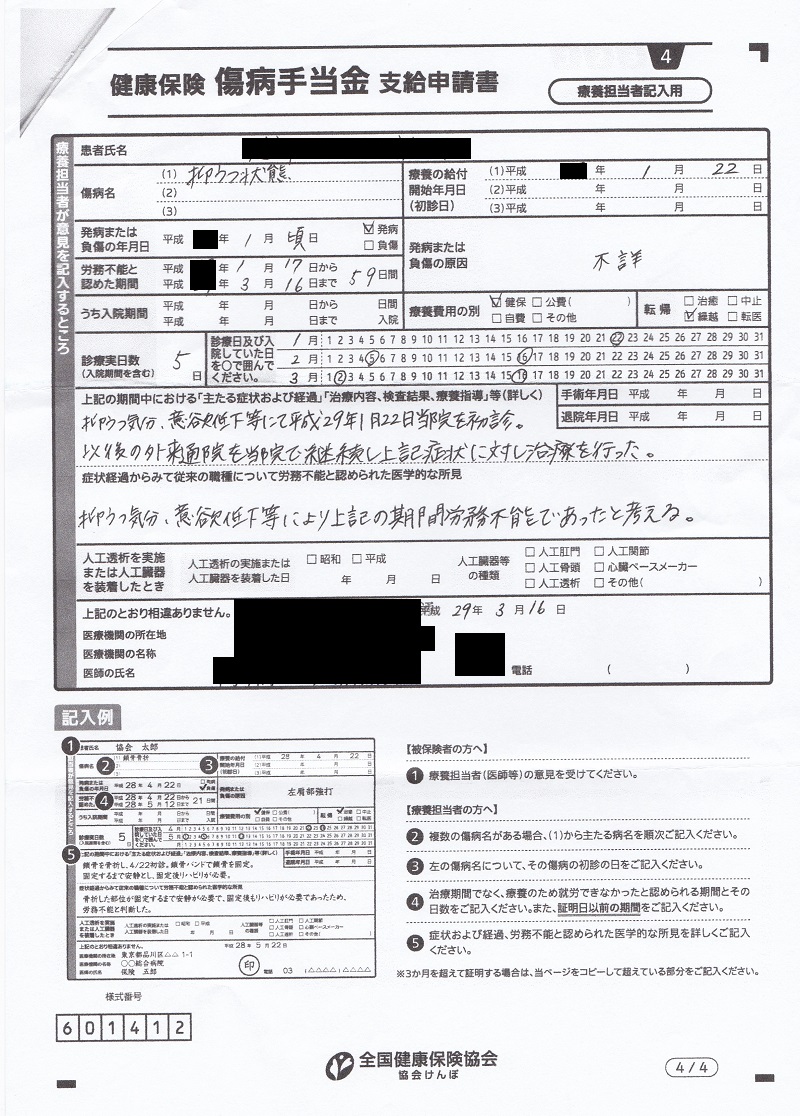 4
健康保険 傷病手当金 支給申請書
療養担当者記入用
療養担当者が意見を記入するところ
患者氏名
傷病名
(1) 抑うつ状態
(2)
(3)
療養の給付開始年月日(初診日)
(1)平成 年 1 月 22 日
(2)平成 年 月 日
(3)平成 年 月 日
発病または負傷の年月日 平成 年 1 月 頃 日 ☑発病 □負傷
発病または負傷の原因 不詳
労務不能と認めた期間
平成 年 1 月 17 日から
平成 年 3 月 16 日まで 59 日間
うち入院期間
平成 年 月 日から 日間
平成 年 月 日まで 入院
療養費用の別 ☑健保 □公費( ) □自費 □その他
転帰 □治癒 □中止 ☑繰越 □転医
診療実日数(入院期間を含む) 5 日
診療日及び入院していた日を○で囲んでください。
1 月 1 2 3 4 5 6 7 8 9 10 11 12 13 14 15 16 17 18 19 20 21 22 23 24 25 26 27 28 29 30 31
2 月 1 2 3 4 5 6 7 8 9 10 11 12 13 14 15 16 17 18 19 20 21 22 23 24 25 26 27 28 29 30 31
3 月 1 2 3 4 5 6 7 8 9 10 11 12 13 14 15 16 17 18 19 20 21 22 23 24 25 26 27 28 29 30 31
上記の期間中における「主たる症状および経過」「治療内容、検査結果、療養指導」等(詳しく)
手術年月日 平成 年 月 日
退院年月日 平成 年 月 日
抑うつ気分、意欲低下等にて平成29年1月22日当院を初診。
以後の外来通院を当院で継続し上記症状に対し治療を行った。
症状経過からみて従来の職種について労務不能と認められた医学的な所見
抑うつ気分、意欲低下等により上記の期間労務不能であったと考える。
人工透析を実施または人工臓器を装着したとき
人工透析の実施または人工臓器を装着した日 □昭和 □平成 年 月 日
人工臓器等の種類
□人工肛門 □人工関節
□人工骨頭 □心臓ペースメーカー
□人工透析 □その他( )
上記のとおり相違ありません。
平成 29 年 3 月 16 日
医療機関の所在地
医療機関の名称
医師の氏名
電話 ( )
記入例
1 患者氏名 協会 太郎
2 傷病名 (1) 鎖骨骨折
3 療養の給付開始年月日(初診日) (1)平成 28 年 4 月 22 日
発病または負傷の年月日 平成 28 年 4 月 22 日 □発病 ☑負傷
発病または負傷の原因 左肩部強打
4 平成 28 年 4 月 22 日から
平成 28 年 5 月 12 日まで 21 日間
うち入院期間
療養費用の別
転帰
診療実日数 5 日
5 上記の期間中における「主たる症状および経過」「治療内容、検査結果、療養指導」等(詳しく)
鎖骨を骨折し、4/22初診。鎖骨バンドで鎖骨を固定。
固定するまで安静とし、固定後リハビリが必要。
症状経過からみて従来の職種について労務不能と認められた医学的な所見
骨折した部位が固定するまで安静が必要で、固定後もリハビリが必要であったため、
労務不能と判断した。
上記のとおり相違ありません。 平成 28 年 5 月 22 日
医療機関の所在地 東京都品川区△△ 1-1
医療機関の名称 ○○総合病院
医師の氏名 保険 五郎
印
電話 03 (△△△△)△△△△
【被保険者の方へ】
1 療養担当者(医師等)の意見を受けてください。
【療養担当者の方へ】
2 複数の傷病名がある場合、(1)から主たる病名を順次ご記入ください。
3 左の傷病名について、その傷病の初診の日をご記入ください。
4 治療期間でなく、療養のため就労できなかったと認められる期間とその
日数をご記入ください。また、証明日以前の期間をご記入ください。
5 症状および経過、労務不能と認められた医学的な所見を詳しくご記入
ください。
※3か月を超えて証明する場合は、当ページをコピーして超えている部分をご記入ください。
様式番号
601412
全国健康保険協会
協会けんぽ
4/4